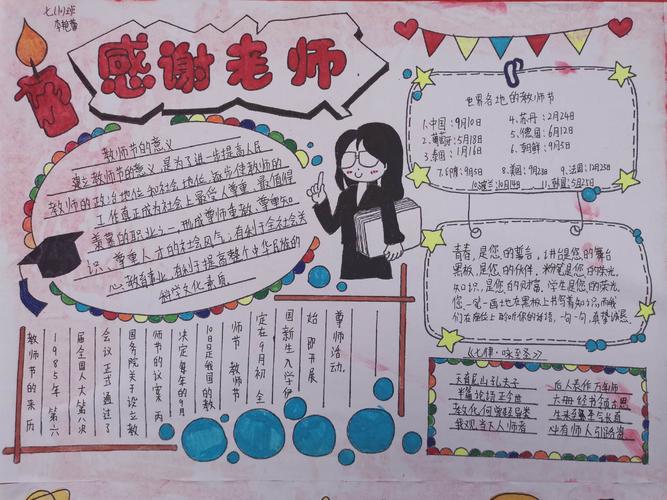 七(10)班
感谢老师
教师节的意义
建立教师节的意义,是为了进一步提高人民
教师的政治地位和社会地位,逐步使教师的
工作真正成为社会上最受人尊重,最值得
羡慕的职业之一,形成尊师重教、尊重知
识、尊重人才的社会风气,有利于全社会关
心教育事业,有利于提高整个中华民族的
科学文化素质
世界各地的教师节
1.中国:9月10日
2.葡萄牙:5月18日
3.泰国:1月16日
4.苏丹:2月24日
5.德国:6月12日
6.朝鲜:9月5日
7.印度:9月5日
8.美国:9月28日
9.法国:12月25日
10.波兰:10月14日
11.韩国:5月25日
青春,是您的舞台,讲台是您的舞台
黑板,是您的伙伴,粉笔是您的荣光
知识,是您的财富,学生是您的荣光。
您一笔一画地在黑板上书写着知识,而我
们在座位上聆听你的话语,一句一句,真挚诚恳
《七律·咏圣》
天育尼山孔夫子
后人尊作万年师
半篇论语正今世
六册经书领古思
教化何曾轻异类
教师节的来历
1985年第六
届全国人大第八次
会议正式通过了
国务院关于设立教
师节的议案,而
决定每年的9月
10日是我国的教
师节,教师节
定在9月初,全
国新生入学伊
始,即开展
尊师活动.